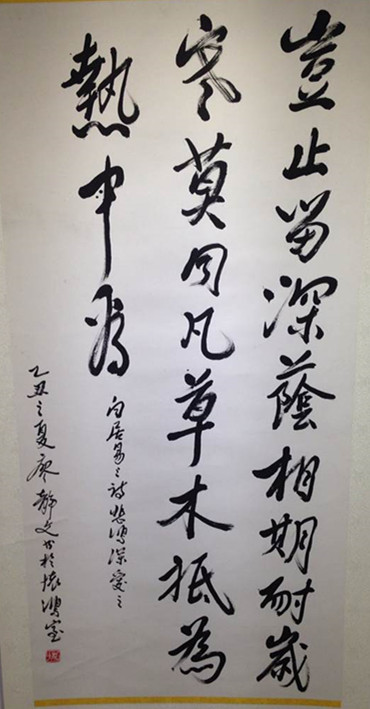 豈止留深蔭相期耐歲
寒莫同凡草木抵為
熱中看
白居易之詩悲鴻深愛之
乙丑之夏廖靜文书於懷鴻室